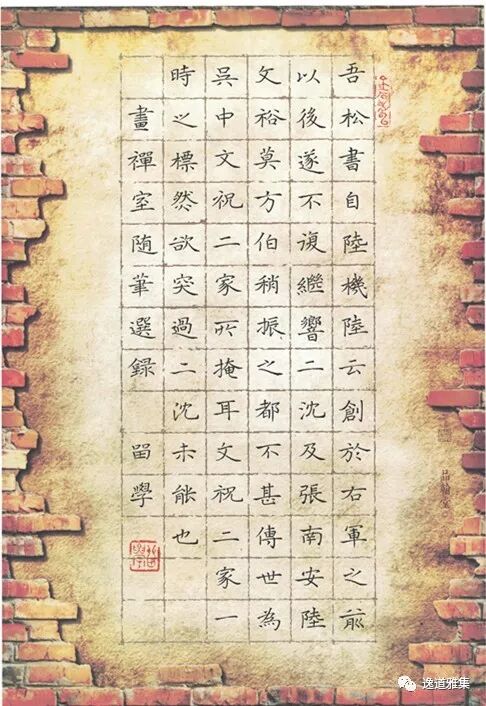 吾松書自陸機陸云創於右軍之前
以後遂不復繼響二沈及張南安陸
文裕莫方伯稍振之都不甚傳世為
吳中文祝二家所掩耳文祝二家一
時之標然欲突過二沈未能也
畫禪室随筆選録 畱學
逸道雅集